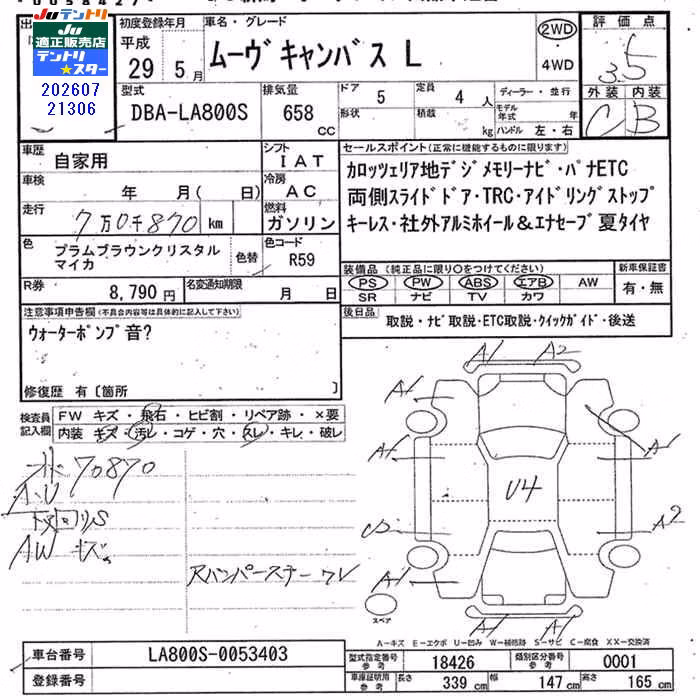 テントリ
JU
適正販売店
テントリ★スター
202607
21306
初度登録年月
平成
29 5月
車名・グレード
ムーヴキャンバス L
2WD
・
4WD
評価点
3.5
外装 内装
C B
型式
DBA-LA800S
排気量
658
CC
ドア
5
形状
定員
4人
積載
kg
ディーラー・並行
モデル年式 年式
ハンドル 左・右
車歴
自家用
シフト
IAT
車検 年 月( 日)
冷房
AC
走行
7万0千870 km
燃料
ガソリン
色
プラムブラウンクリスタル
マイカ
色替
色コード
R59
R券
8,790円
名変通知期限
月 日
セールスポイント(正常に機能するものに限ります)
カロッツェリア地デジメモリーナビ・バナETC
両側スライドドア・TRC・アイドリングストップ
キーレス・社外アルミホイール&エナセーブ夏タイヤ
装備品(純正品に限り○をつけてください)
PS PW ABS エアB AW
SR ナビ TV カワ
新車保証書
有・無
後日品
取説・ナビ取説・ETC取説・クイックガイド・後送
注意事項申告欄(不具合内容等は具体的に記入して下さい)
ウォーターポンプ音?
修復歴 有〔箇所 〕
検査員
記入欄
FW キズ・飛石・ヒビ割・リペア跡・×要
内装 キズ・汚レ・コゲ・穴・スレ・キレ・破レ
70870
AW キズ
Rバンパーステー
A1 A2
A1
A1 A1
U4
A2
A1 A1
スペア
A1 A1
A-キズ E-エクボ U-凹み W-補修跡 S-サビ C-腐食 XX-交換済
車台番号
LA800S-0053403
登録番号
型式指定番号
参考
18426
類別区分番号
参考
0001
車庫証明用
参考
長さ
339 cm
幅
147 cm
高さ
165 cm